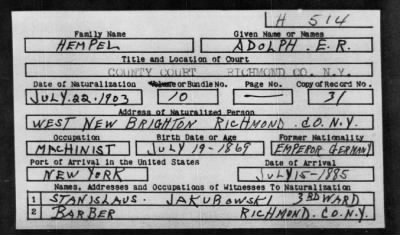 H 514
Family Name Given Name or Names
HEMPEL ADOLPH . E. R.
Title and Location of Court
COUNTY COURT RICHMOND CO. N.Y.
Date of Naturalization Volume or Bundle No. Page No. Copy of Record No.
JULY. 22. 1903 10 — 31
Address of Naturalized Person
WEST NEW BRIGHTON RICHMOND . CO. N.Y.
Occupation Birth Date or Age Former Nationality
MACHINIST JULY 19-1869 EMPEROR GERMANY
Port of Arrival in the United States Date of Arrival
NEW YORK JULY 15-1885
Names, Addresses and Occupations of Witnesses To Naturalization
1 STANISLAUS. JAKUBOWSKI 3RD WARD
2 BARBER RICHMOND. CO. N.Y.